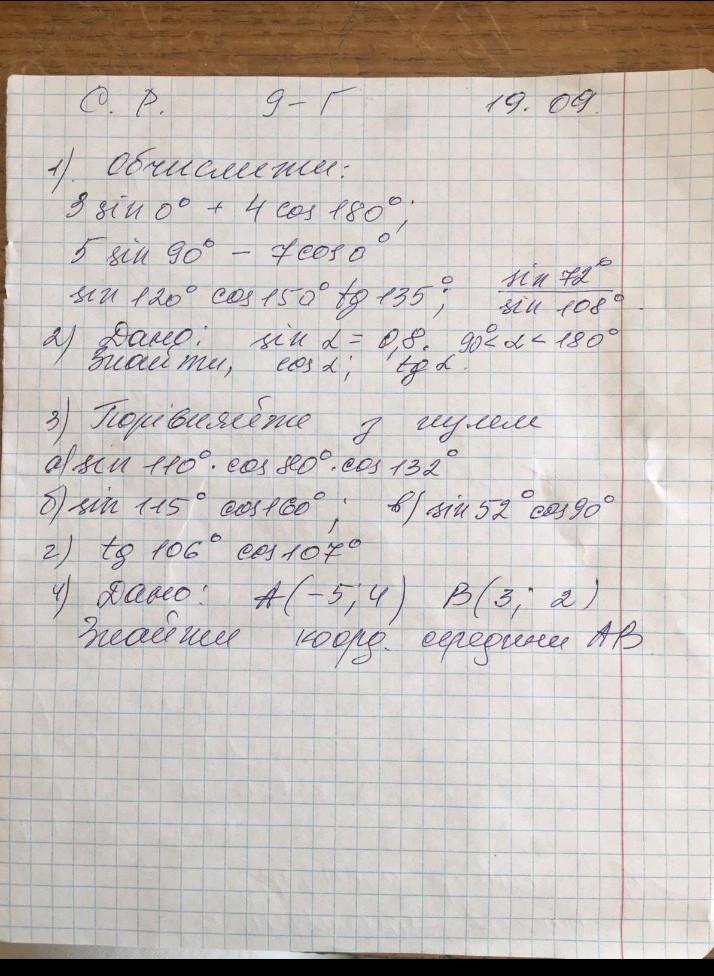 С. Р. 9-Г 19.09.
1). Обчислити:
3 sin 0° + 4 cos 180°;
5 sin 90° - 7 cos 0°
sin 120° cos 150° tg 135°; sin 72° / sin 108°.
2) Дано: sin α = 0,8. 90° < α < 180°
Знайти, cos α; tg α.
3) Порівняйте з нулем
а) sin 110° · cos 80° · cos 132°
б) sin 115° cos 160°; в) sin 52° cos 90°
г) tg 106° cos 107°
4) Дано: A(-5; 4) B(3; 2)
Знайти коорд. середини AB